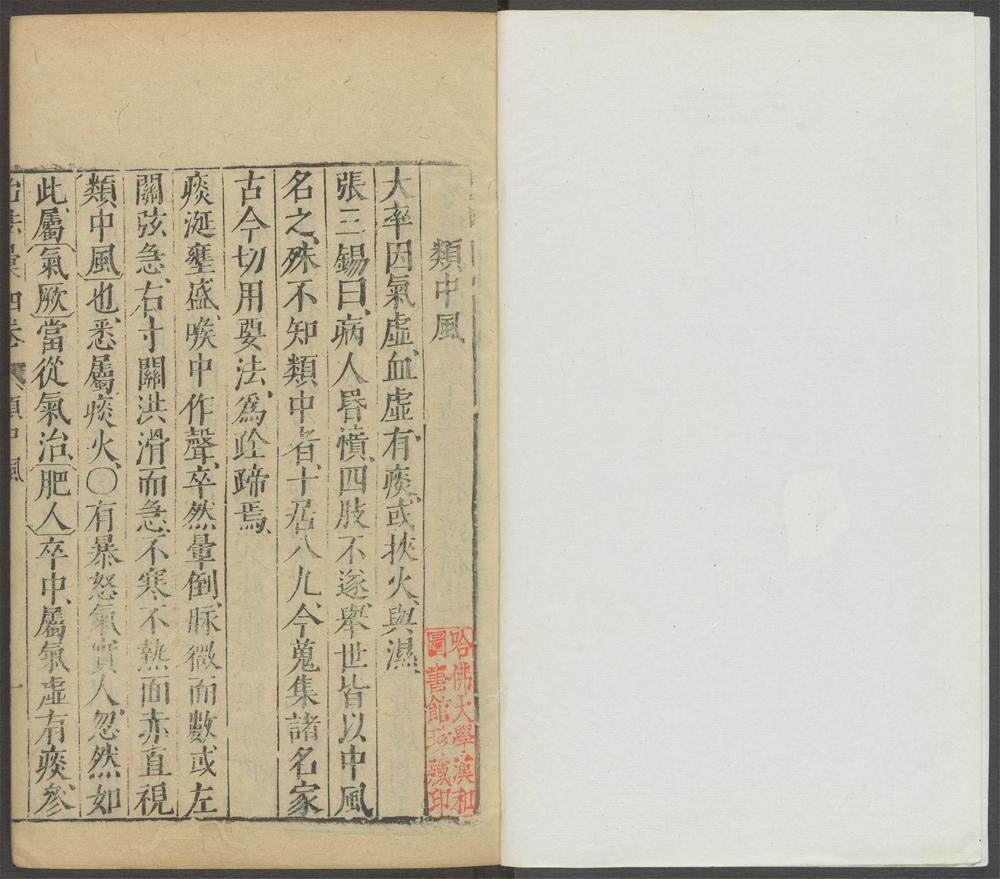 類中風
大率因氣虛血虛有痰或挾火與濕
張三錫曰病人昏憒四肢不遂舉世皆以中風
名之殊不知類中者十居八九今蒐集諸名家
古今切用要法爲詮蹄焉
痰涎壅盛喉中作聲卒然暈倒脉微而數或左
關弦急右寸關洪滑而急不寒不熱面赤直視
類中風也悉屬痰火〇有暴怒氣實人忽然如
此屬氣厥當從氣治肥人卒中屬氣虛有痰參
治法彙四卷 類中風 一
哈佛大學漢和
圖書館珍藏印